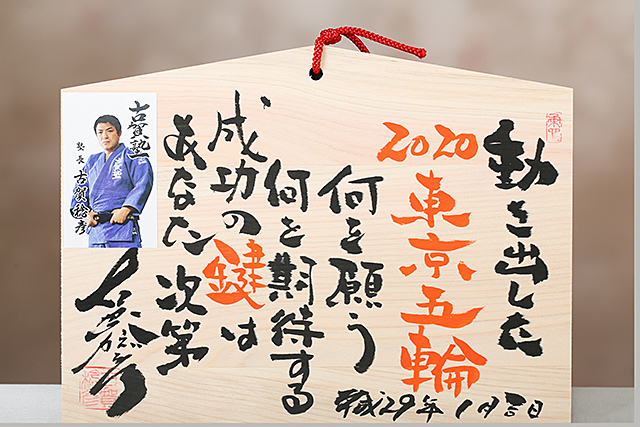 動き出した
2020
東京五輪
何を願う
何を期待する
成功の鍵は
あなた次第
平成29年1月吉日
古賀塾
塾長 古賀稔彦